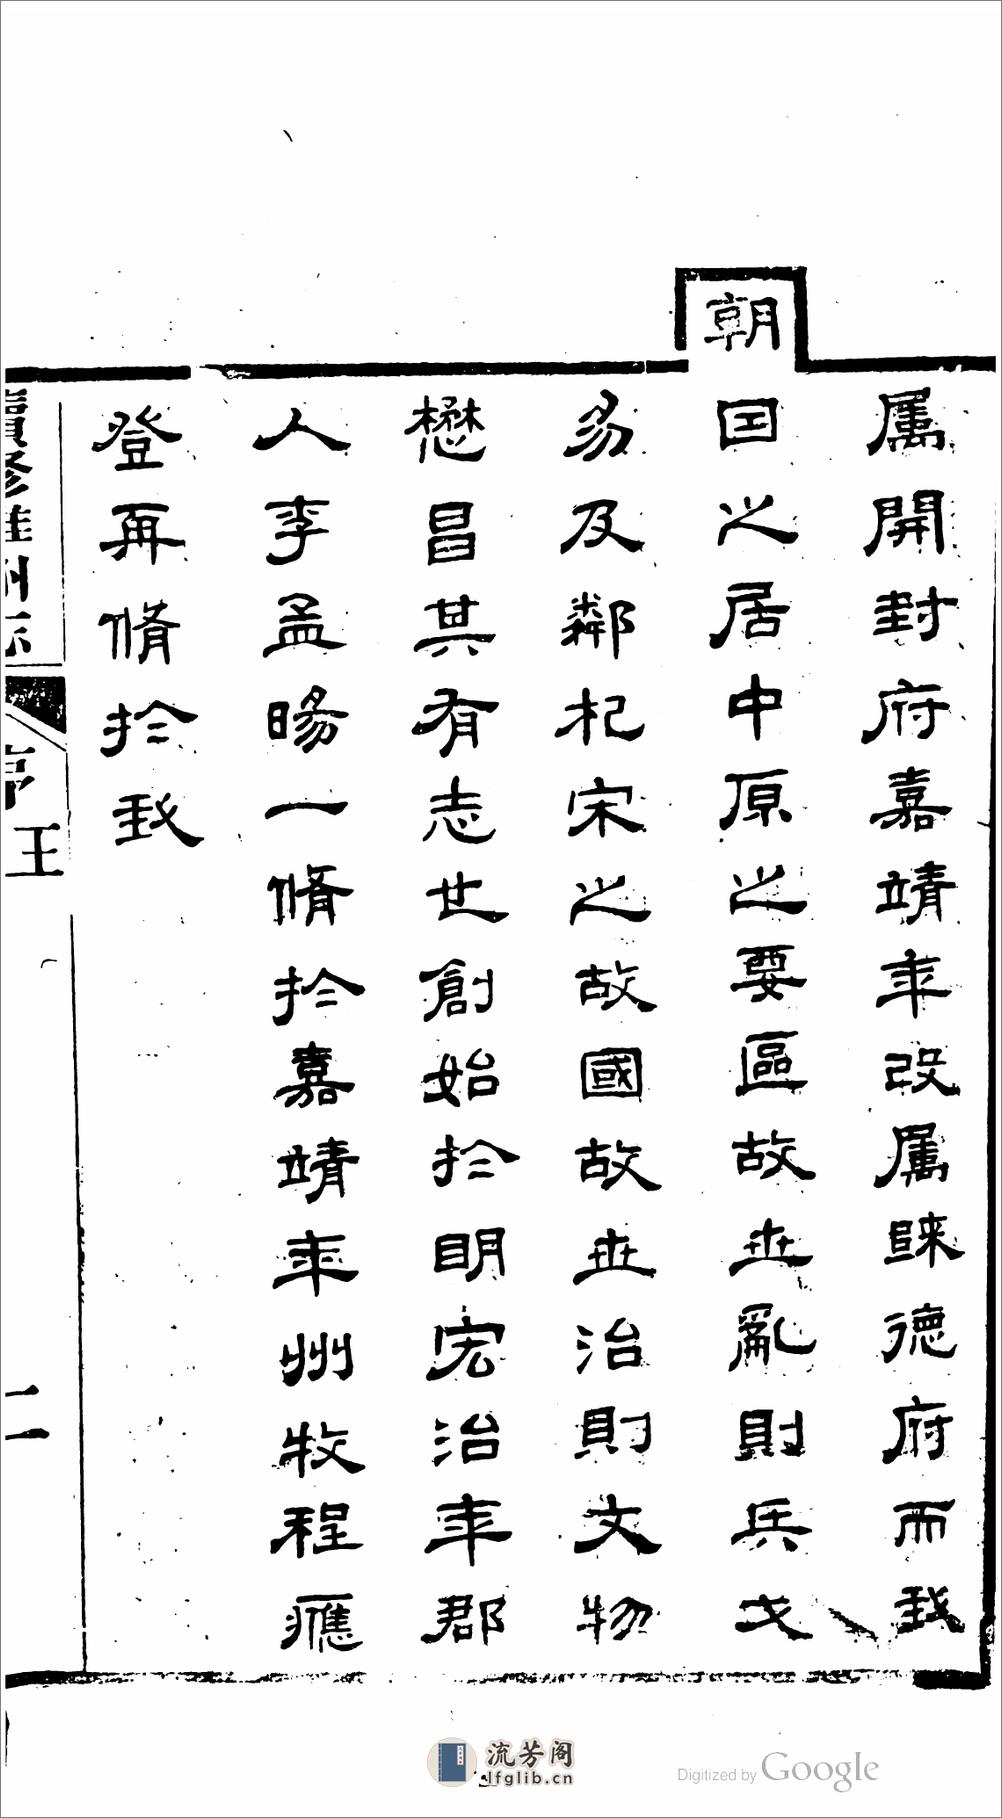 属開封府嘉靖年改属歸德府而我
朝
囙之居中原之要區故世亂則兵戈
易及鄰杞宋之故國故世治則文物
懋昌其有志也創始於明宏治年郡
人李孟暘一脩於嘉靖年州牧程應
登再脩於我
續修睢州志
序
王
二
流芳阁
lfglib.cn
Digitized by Google